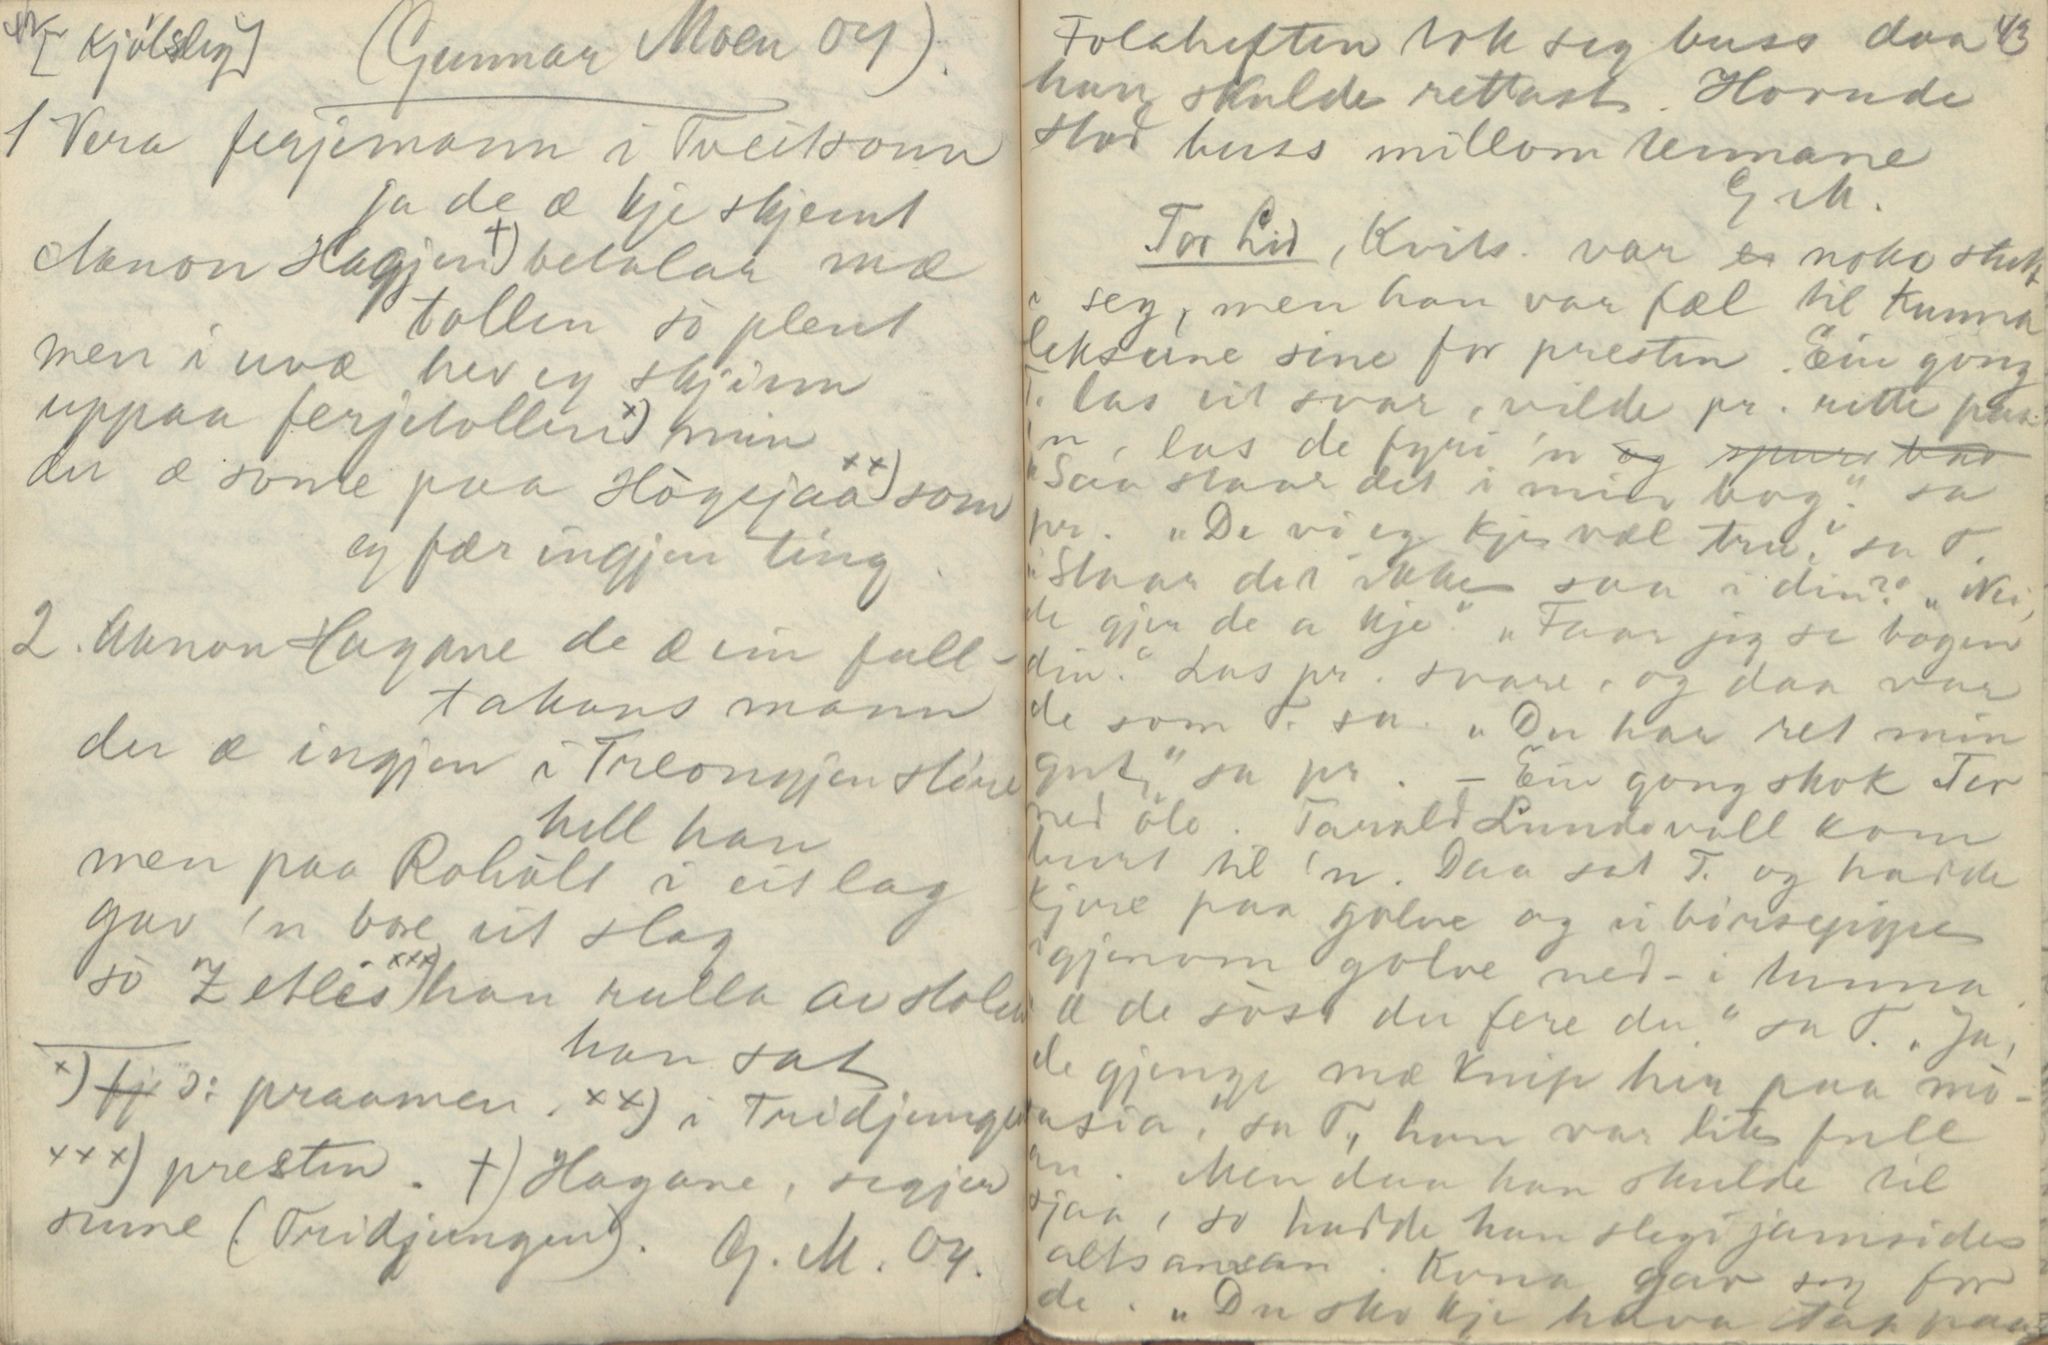 42
[Kjölsleg] (Gunnar Moen Oy).
1 Vera ferjemann i Tveitsonn
ja de æ kje skjemt
Aanon Hagjen †) betalar mæ
tollen sò plent
men i uvæ hev eg skjinn
uppaa ferjetollen x) min
der æ some paa Högejaa xx) som
eg fær ingjen ting
2. Aanon Hagane de æ ein full-
takans mann
der æ ingjen i Treongjen större
hell han
men paa Roholt i eit lag
gav 'n bare eit slag
sò Zetlis xxx) han rulla av stolen
han sat
x) ɔ: praamen. xx) i Tridjungen
xxx) presten. †) Hagane, segjer
sume (Tridjungen). G. M. Oy.
43
Folahesten tok seg buss daa
han skulde rettast. Hornde
stod buss millom tennane
G M.
Tor Lid, Kvits. var noko stutt
i seg, men han var fæl til kunna
leksune sine for presten. Ein gong
T. las eit svar, vilde pr. rette paa
'n, las de fyri 'n og spurs
"Saa staar det i min bog" sa
pr. "De vi eg kje væl tru," sa T.
"Staar det ikke saa i din?" "Nei,
de gjer de a kje." "Faar jeg se bogen
din." Las pr. svare, og daa var
de som T. sa. "Du har ret min
gut," sa pr. – Ein gong skok Tor
ned öle. Tarald Lundevall kom
burt til 'n. Daa sat T. og hadde
kjore paa golve og ei börsepipe
igjenom golve ned i tunna.
"Æ de söss du fere du." sa T. "Ja,
de gjenge mæ knip her paa mò-
asia," sa T., han var lite full
an. Men daa han skulde til
sjaa, so hadde han slegi jamsides
altsansan. Kona gav seg for
de. "Du sko kje hava tap paa